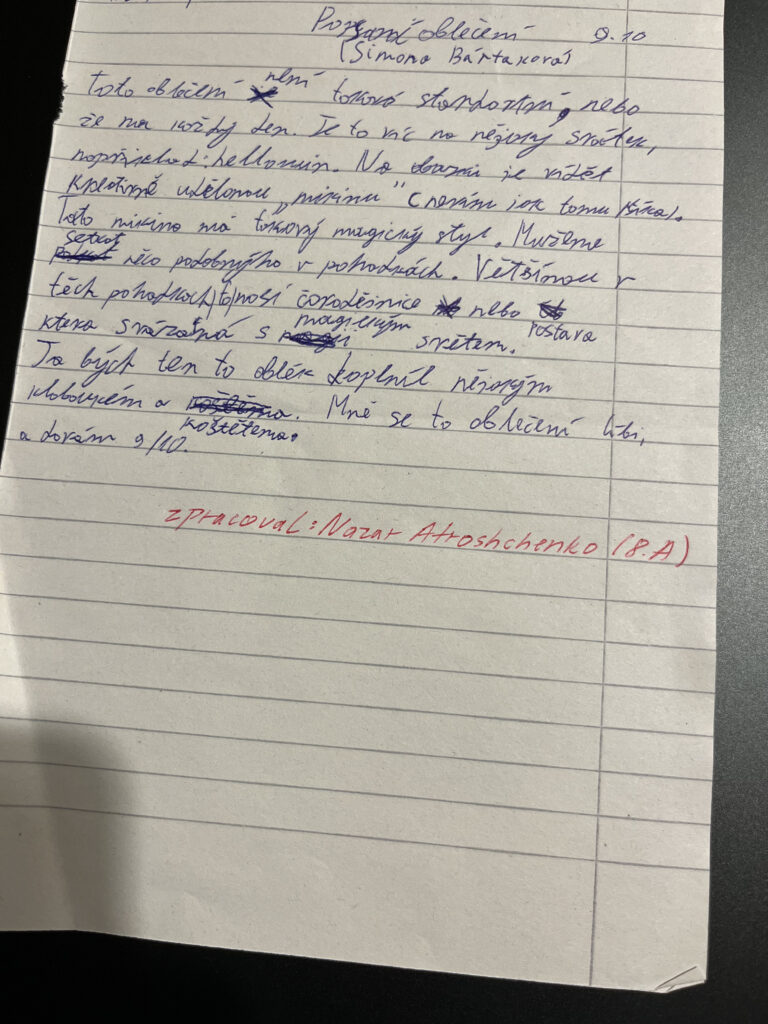 Popsané oblečení 9.10
(Simona Bártaková)
Toto oblečení není takové standartní, nebo
že na každý den. Je to víc na nějaký svátek,
například: hellowin. Na obrazu je vidět
kreativně udělanou „mikinu" (nevím jak tomu říkal).
Tato mikina má takový magický styl. Mužeme
setkat něco podobnýho v pohádkách. Většinou v
těch pohádkach, to nosí čarodějnice nebo postava
ktera svázaná s magickým světem.
Ja bých ten to oblék doplnil nějakým
kloboukém a koštětema. Mně se to oblečení libi,
a dávám 9/10.
zpracoval: Nazar Atroshchenko (8.A)